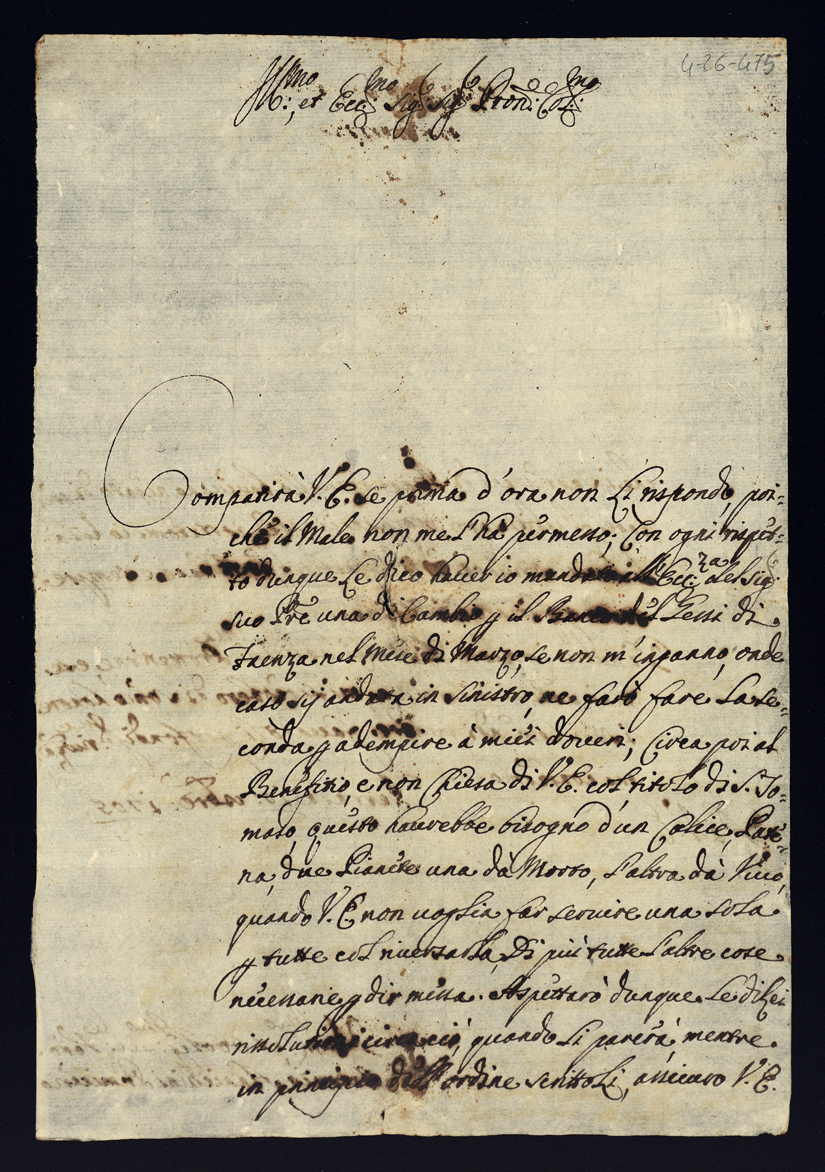 4-26-475
Ill:mo et Ecc:mo Sig:r Sig:r Pron: Col:mo
Compatirà V. E. se prima d'ora non Li rispondo, poi=
chè il Male non me l'hà permesso; Con ogni rispet=
to dunque Le dico haver io mandato all' Ecc:za del Sig:r
suo Pre una di Cambio p il Banco del Gessi di
Faenza nel Mese di Marzo, se non m'inganno, onde
caso sij andata in sinistro, ne farò fare La se=
conda p adempire à miei doveri; Circa poi al
Benefitio, e non Chiesa di V. E. col titolo di S. To=
maso, questo haverebbe bisogno d'un Calice, Pate=
na, due Pianete una dà Morto, l'altra dà Vivo,
quando V. E. non voglia far servire una sola
p tutte col riversarla, Di più tutte l'altre cose
necessarie p dir messa. Aspettarò dunque Le di Lei
rissolutioni circa ciò, quando Li parerà, mentre
in principio dell' ordine scrittoLi, assicuro V. E.